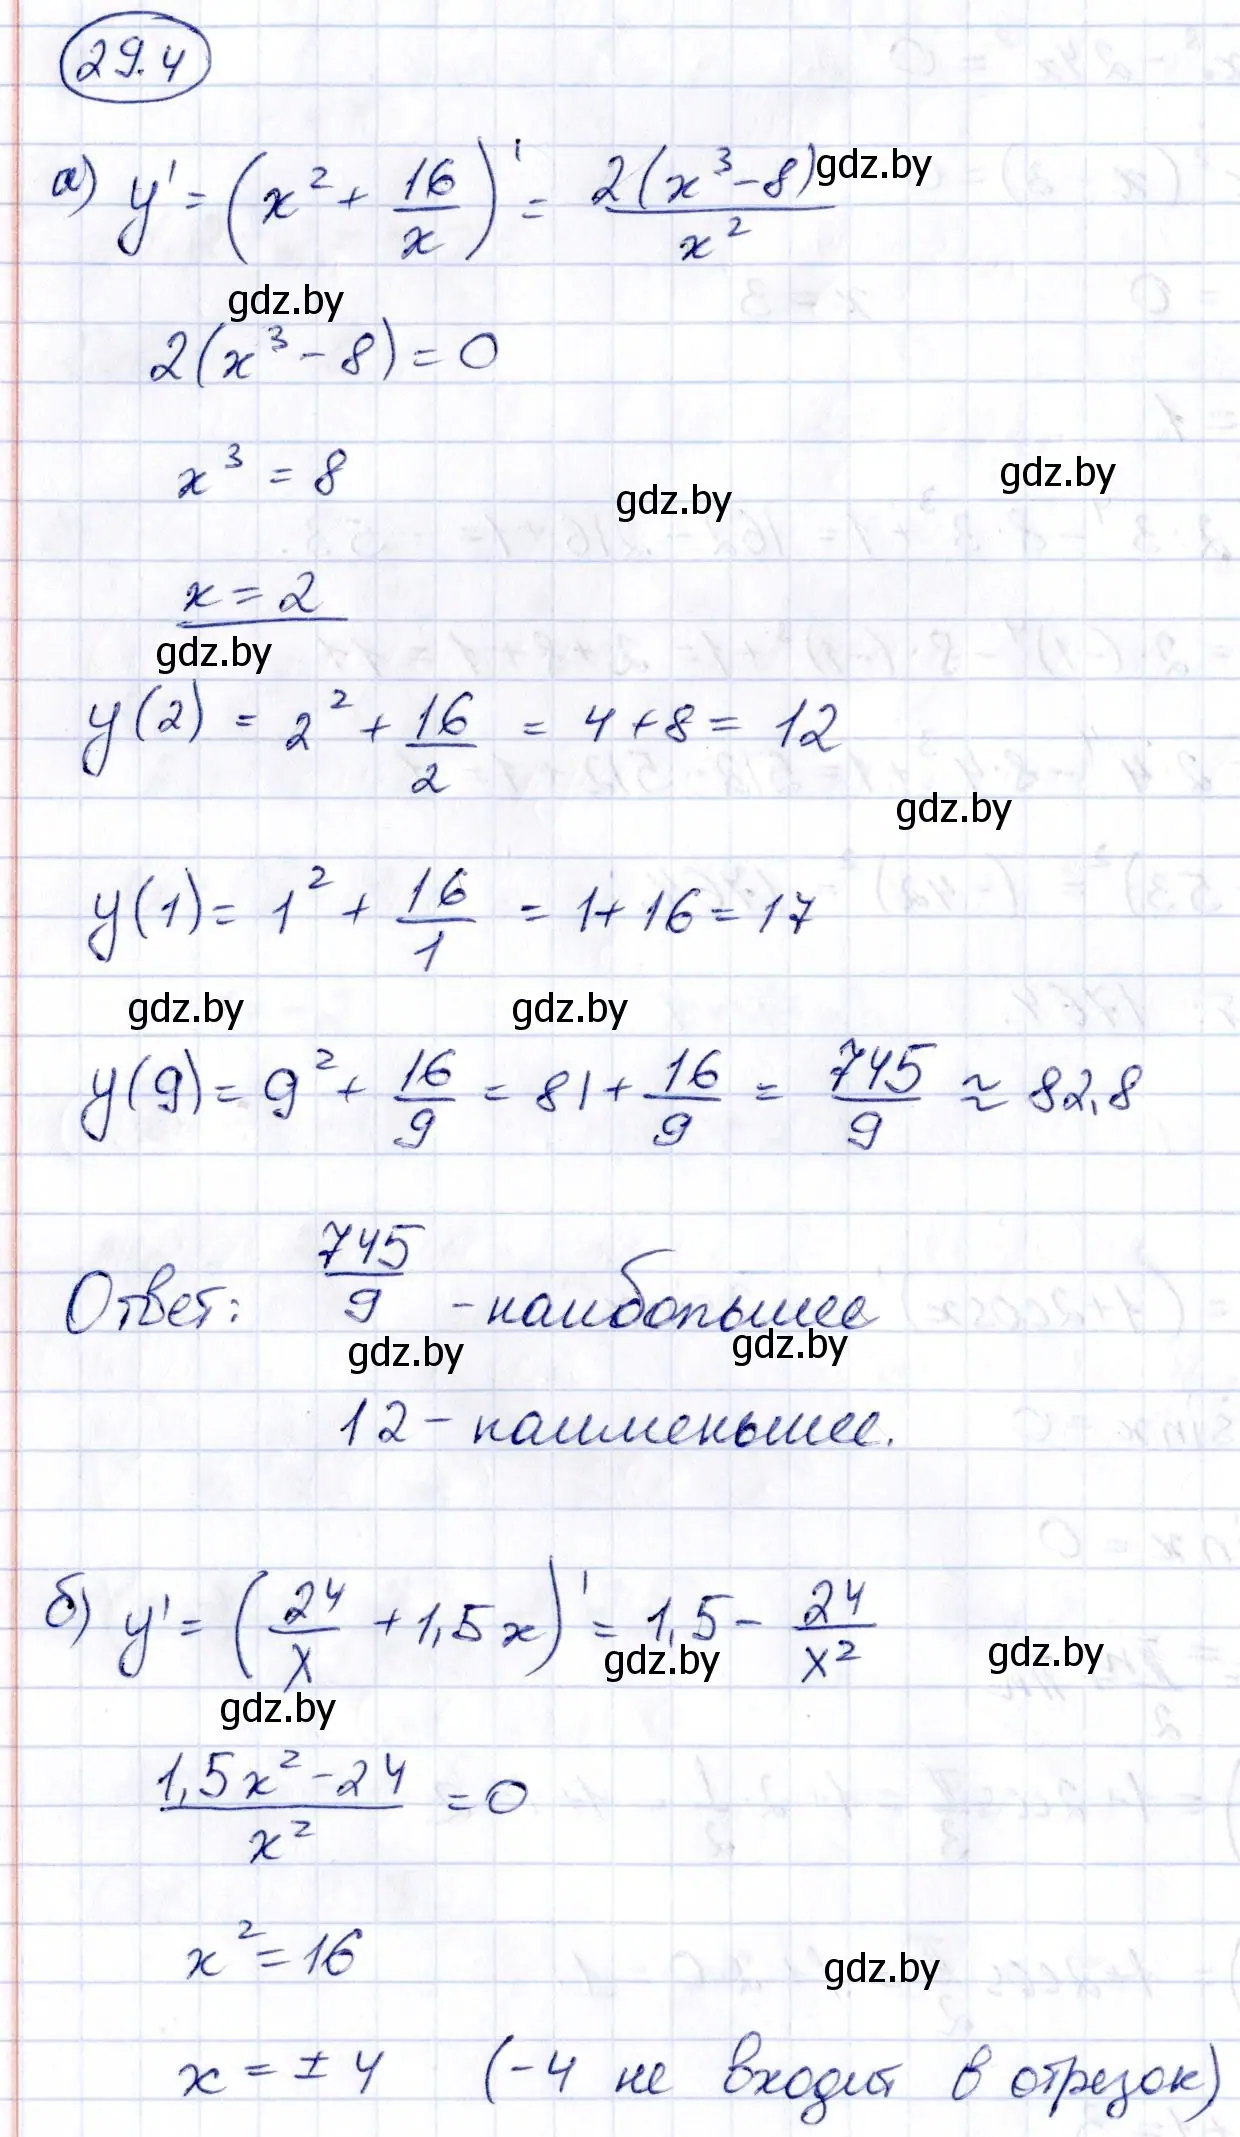 29.4
а) y' = (x² + 16/x)' = 2(x³ - 8)/x² gdz.by
gdz.by
2(x³ - 8) = 0
x³ = 8
gdz.by gdz.by
x = 2
gdz.by
y(2) = 2² + 16/2 = 4 + 8 = 12
gdz.by
y(1) = 1² + 16/1 = 1 + 16 = 17
gdz.by gdz.by
y(9) = 9² + 16/9 = 81 + 16/9 = 745/9 ≈ 82,8
Ответ: 745/9 - наибольшее
gdz.by gdz.by
12 - наименьшее.
б) y' = (24/x + 1,5x)' = 1,5 - 24/x²
gdz.by gdz.by
gdz.by
(1,5x² - 24)/x² = 0
x² = 16
gdz.by
x = ± 4 (-4 не входит в отрезок)